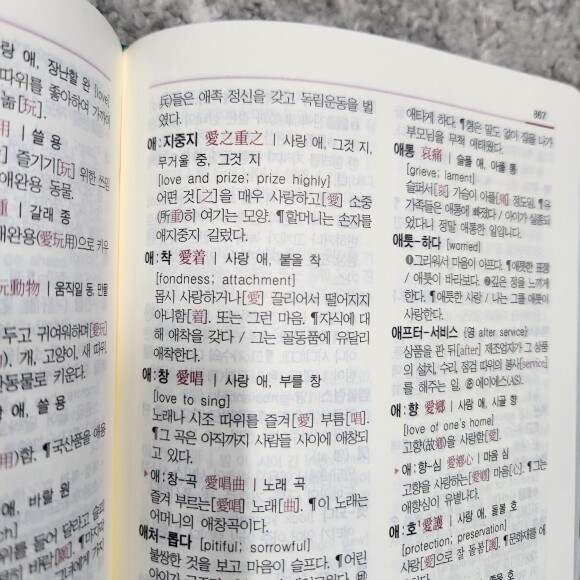 랑 애, 장난할 완 [love
따위를 좋아하여 가까이
놂[玩].
用 | 쓸 용
즐기기[玩] 위한 쓰임
애완용 동물.
重 | 갈래 종
애완용(愛玩用)으로 키우
玩動物 | 움직일 동, 만물
두고 귀여워하며[愛玩]
개, 고양이, 새 따위.
완동물로 키운다.
애, 쓸 용
用)함. ¶국산품을 애용
애, 바랄 원
위를 들어 달라고 슬피
바람[願]. ¶마지막
그에게 가지
兵)들은 애족 정신을 갖고 독립운동을 벌
였다.
애ː지중지 愛之重之 | 사랑 애, 그것 지,
무거울 중, 그것 지
[love and prize; prize highly]
어떤 것[之]을 매우 사랑하고[愛] 소중
(所重)히 여기는 모양. ¶할머니는 손자를
애지중지 길렀다.
애ː착 愛着 | 사랑 애, 붙을 착
[fondness; attachment]
몹시 사랑하거나[愛] 끌리어서 떨어지지
아니함[着]. 또는 그런 마음. ¶자식에 대
해 애착을 갖다 / 그는 골동품에 유달리
애착한다.
애ː창 愛唱 | 사랑 애, 부를 창
[love to sing]
노래나 시조 따위를 즐겨[愛] 부름[唱].
¶그 곡은 아직까지 사람들 사이에 애창되
고 있다.
▸애ː창-곡 愛唱曲 | 노래 곡
즐겨 부르는[愛唱] 노래[曲]. ¶이 노래는
어머니의 애창곡이다.
애처-롭다 [pitiful; sorrowful]
불쌍한 것을 보고 마음이 슬프다. ¶어린
867
애타게 하다. ¶형은 말도 없이 집을 나가
부모님을 무척 애태웠다.
애통 哀痛 | 슬플 애, 아플 통
[grieve; lament]
슬퍼서[哀] 가슴이 아플[痛] 정도임. ¶유
가족들은 애통에 빠졌다 / 아이가 실종되
었다니 정말 애통한 일입니다.
애틋-하다 [worried]
❶그리워서 마음이 아프다. ¶애틋한 표정
/ 애틋이 바라보다. ❷깊은 정을 느끼게
한다. ¶애틋한 사랑 / 나는 그를 애틋이
사랑한다.
애프터-서비스 {영 after service}
상품을 판 뒤[after] 제조업자가 그 상품
의 설치, 수리, 점검 따위의 봉사[service]
를 해주는 일. ㉰에이에스(AS).
애ː향 愛鄕 | 사랑 애, 시골 향
[love of one's home]
고향(故鄕)을 사랑함[愛].
▸애ː향-심 愛鄕心 | 마음 심
고향을 사랑하는[愛鄕] 마음[心]. ¶그는
애향심이 유별나다.
애ː호 愛護 | 사랑 애, 돌볼 호
[protection; preservation]
[愛]으로 잘 돌봄[護]. ¶문화재를 애